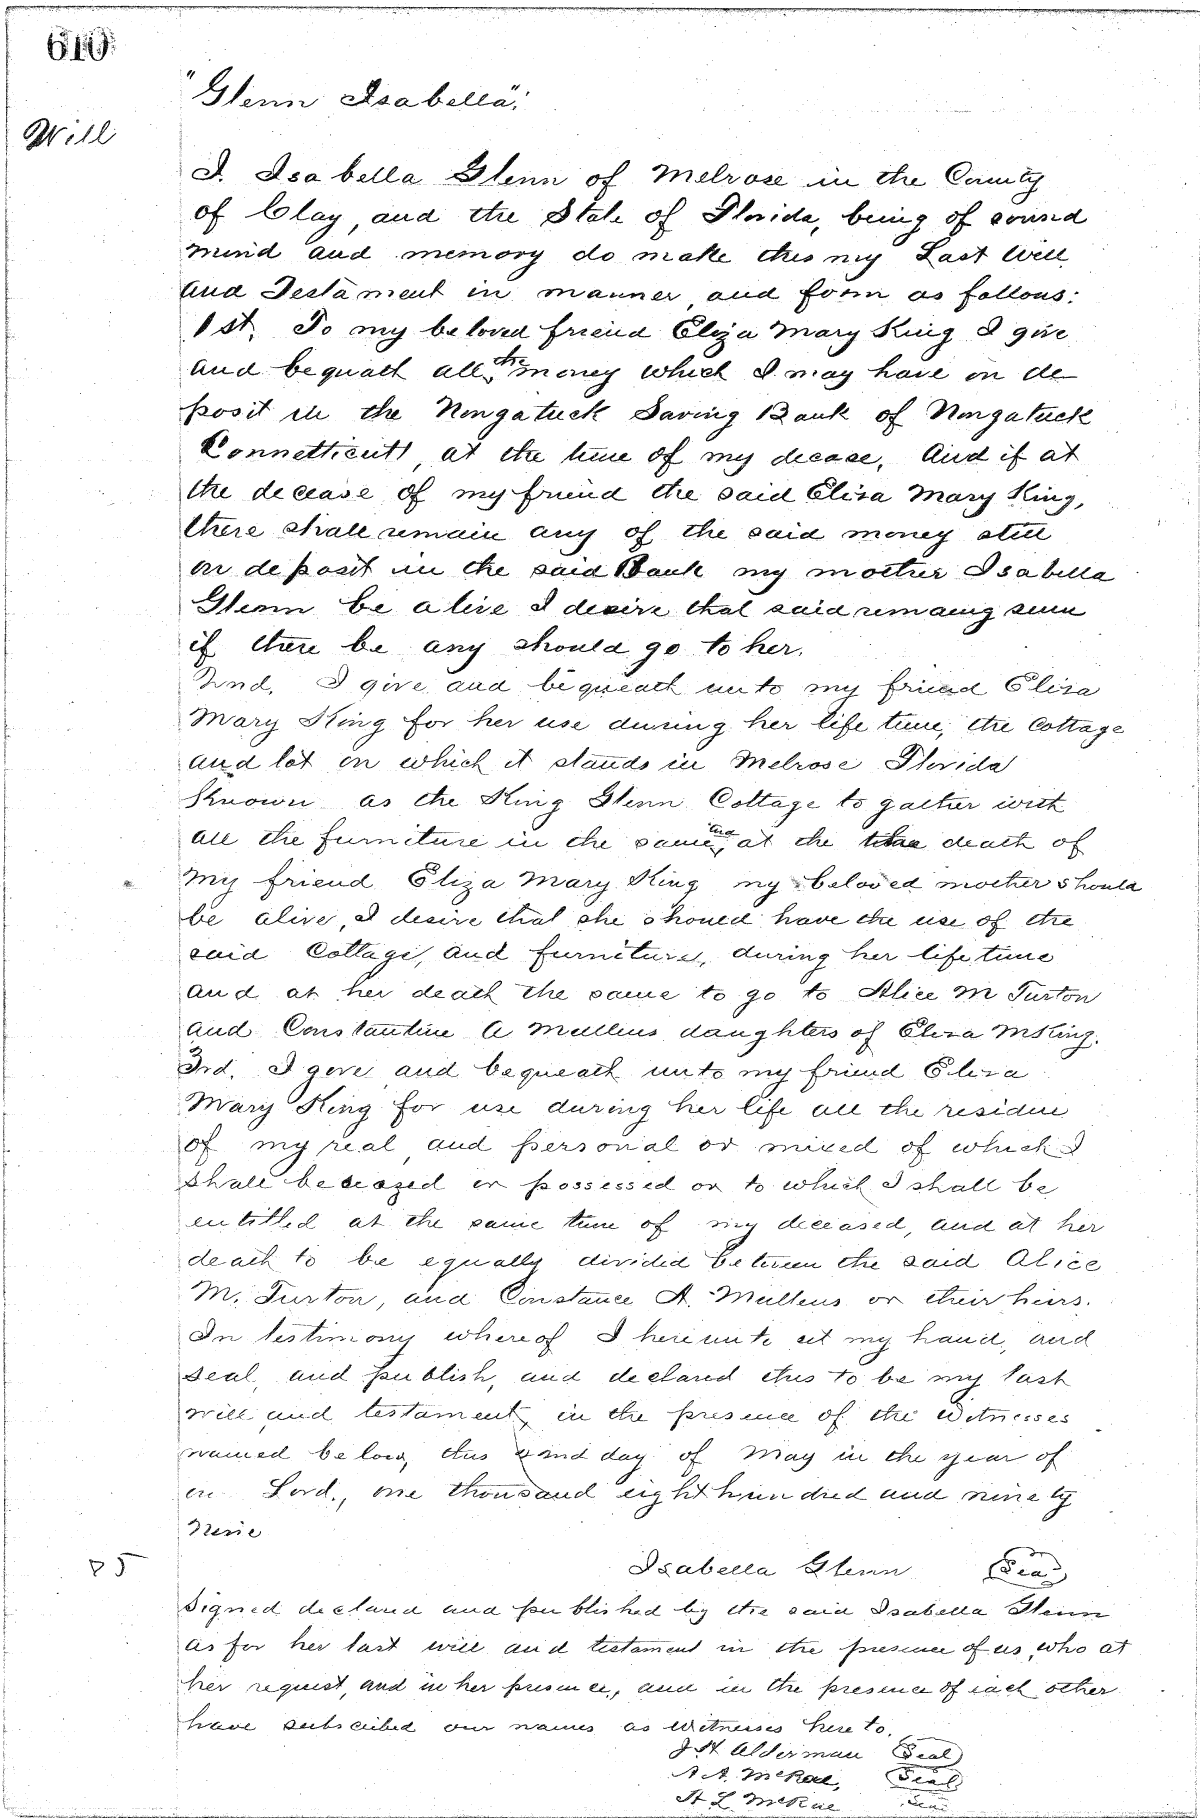 "Glenn Isabella";
Will
I. Isabella Glenn of Melrose in the County
of Clay, and the State of Florida, being of sound
mind and memory do make this my Last Will
and Testament in manner and form as follows:
1st. To my beloved friend Eliza Mary King I give
and bequath all the money which I may have on de
posit in the Nongatuck Saving Bank of Nongatuck
Connetticutt, at the time of my decase, And if at
the decease of my friend the said Eliza Mary King,
there shall remain any of the said money still
on deposit in the said Bank my mother Isabella
Glenn be alive I desire that said remaing sum
if there be any should go to her.
2nd. I give and bequeath unto my friend Eliza
Mary King for her use during her life time, the Cottage
and lot on which it stands in Melrose Florida
Known as the King Glenn Cottage to gather with
all the furniture in the same, and at the death of
my friend Eliza Mary King my beloved mother should
be alive, I desire that she should have the use of the
said Cottage, and furniture, during her life time
and at her death the same to go to Alice M Turton
and Constantine A Mullins daughters of Eliza M King.
3rd. I give and bequeath unto my friend Eliza
Mary King for use during her life all the residue
of my real and personal or mixed of which I
shall be seazed or possessed or to which I shall be
entitled at the same time of my deceased, and at her
death to be equally divided between the said Alice
M. Turton, and Constance A. Mullens or their heirs.
In testimony whereof I hereunto set my hand, and
seal, and publish, and declared this to be my last
will and testament, in the presence of the witnesses
named below, this 2nd day of May in the year of
Lord., one thousand eight hundred and ninety
Nine
Isabella Glenn (Seal)
Signed declared and published by the said Isabella Glenn
as for her last will and testament in the presence of us, who at
her request, and in her presence, and in the presence of each other
have subscribed our names as witnesses hereto.
J H Alderman (Seal)
A A. McRae, (Seal)
H L McRae Seal